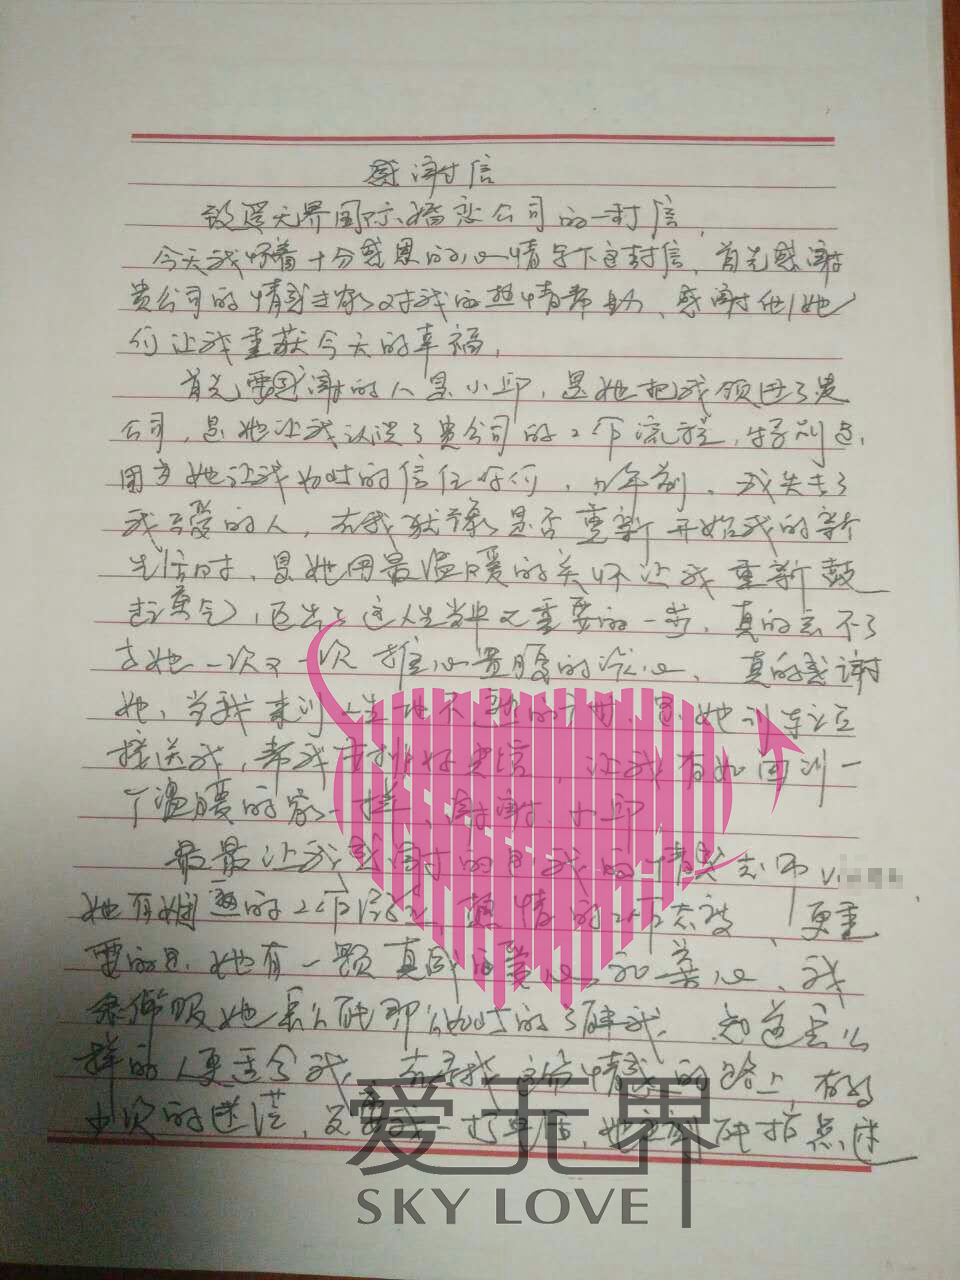 感谢信
致爱无界国际婚恋公司的一封信,
今天我怀着十分感恩的心情写下这封信、首先感谢
贵公司的情感专家对我的热情帮助、感谢他/她
们让我重获今天的幸福,
首先要感谢的人是小邱,是她把我领进了贵
公司,是她让我认识了贵公司的工作流程,特别是,
因为她让我
的信任
年前、我失去了
我
爱的人,在我犹豫是否重新开始我的新
生活时,是她用最温暖的关怀让我重新鼓
起勇气,迈出了这人生当中又重要的一步,真的忘不了
她一次又一次推心置腹的谈心、真的感谢
她,当我来到人生地不熟的
是她
接送我,帮我安排好
让我有如回到一
个温暖的家一样、谢谢、小邱,
最最让我感谢的是我的情感老师vi
她有
的工作
热情的工作态度、更重
要的是、她有一颗真诚的爱心和善心、我
佩服她怎么能那么
的了解我、知道怎么
样的人更适合我、在寻找
情感的路上,有的
的迷茫,
她
能指点迷
爱无界
SKY LOVE